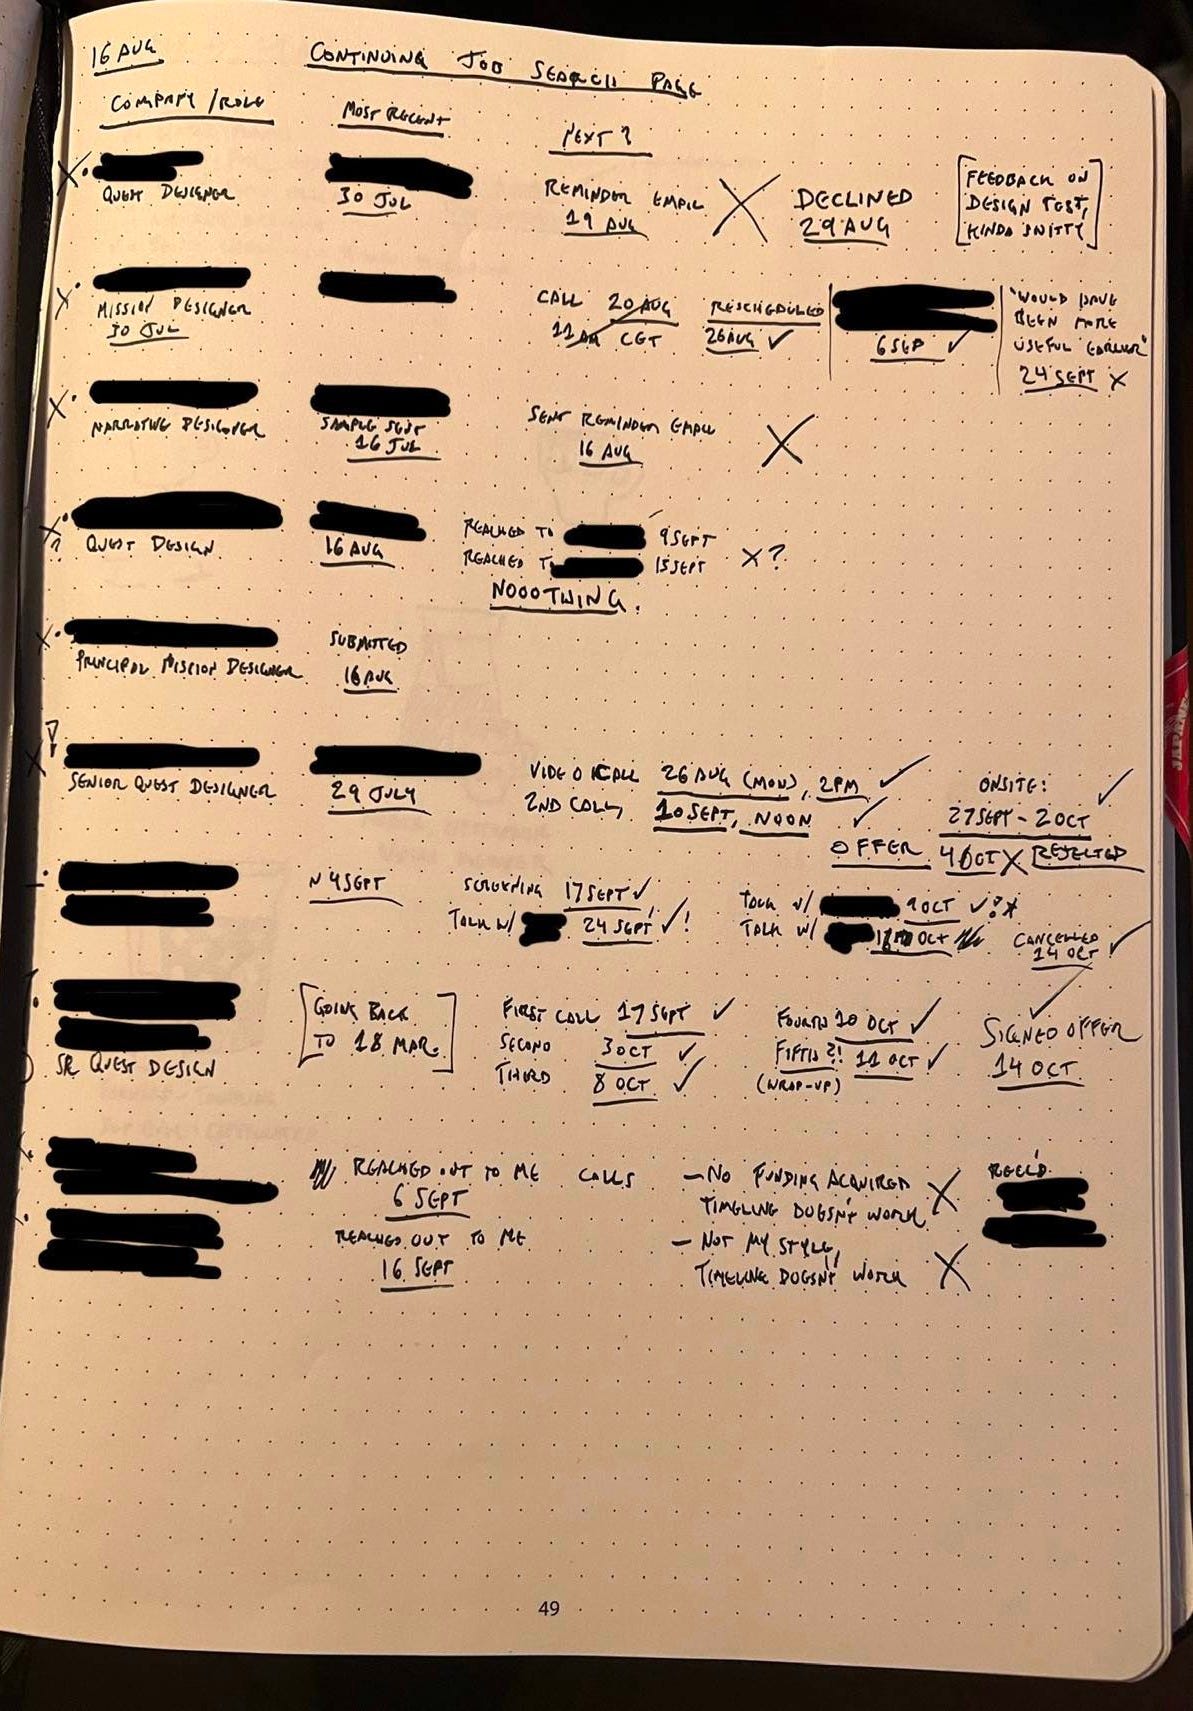 16 AUG
CONTINUING JOB SEARCH PAGE
COMPANY / ROLE
MOST RECENT
NEXT?
QUEST DESIGNER
30 JUL
REMINDER EMAIL
19 AUG
DECLINED
29 AUG
FEEDBACK ON
DESIGN TEST,
KINDA SNITTY
MISSION DESIGNER
30 JUL
CALL 20 AUG
11 AM CET
RESCHEDULED
26 AUG ✓
6 SEP ✓
"WOULD HAVE
BEEN MORE
USEFUL EARLIER"
24 SEPT X
NARRATIVE DESIGNER
SAMPLE SENT
16 JUL
SENT REMINDER EMAIL
16 AUG
QUEST DESIGN
16 AUG
REACHED TO 9 SEPT
REACHED TO 15 SEPT
X?
NOOOTHING.
PRINCIPAL MISSION DESIGNER
SUBMITTED
16 AUG
SENIOR QUEST DESIGNER
29 JULY
VIDEO CALL 26 AUG (MON), 2PM ✓
2ND CALL, 10 SEPT, NOON ✓
ONSITE:
27 SEPT - 2 OCT ✓
OFFER 4 OCT X REJECTED
N 4 SEPT
SCREENING 17 SEPT ✓
TALK W/ 24 SEPT ✓!
TALK W/ 9 OCT ✓
TALK W/ OCT
CANCELLED
14 OCT ✓
SR QUEST DESIGN
[GOING BACK
TO 18 MAR.]
FIRST CALL 17 SEPT ✓
SECOND 3 OCT ✓
THIRD 8 OCT ✓
FOURTH 10 OCT ✓
FIFTH?! 11 OCT ✓
(WRAP-UP)
SIGNED OFFER
14 OCT
REACHED OUT TO ME
6 SEPT
CALLS
- NO FUNDING ACQUIRED
TIMELINE DOESN'T WORK X
REACHED OUT TO ME
16 SEPT
- NOT MY STYLE,
TIMELINE DOESN'T WORK X
REC'D
49